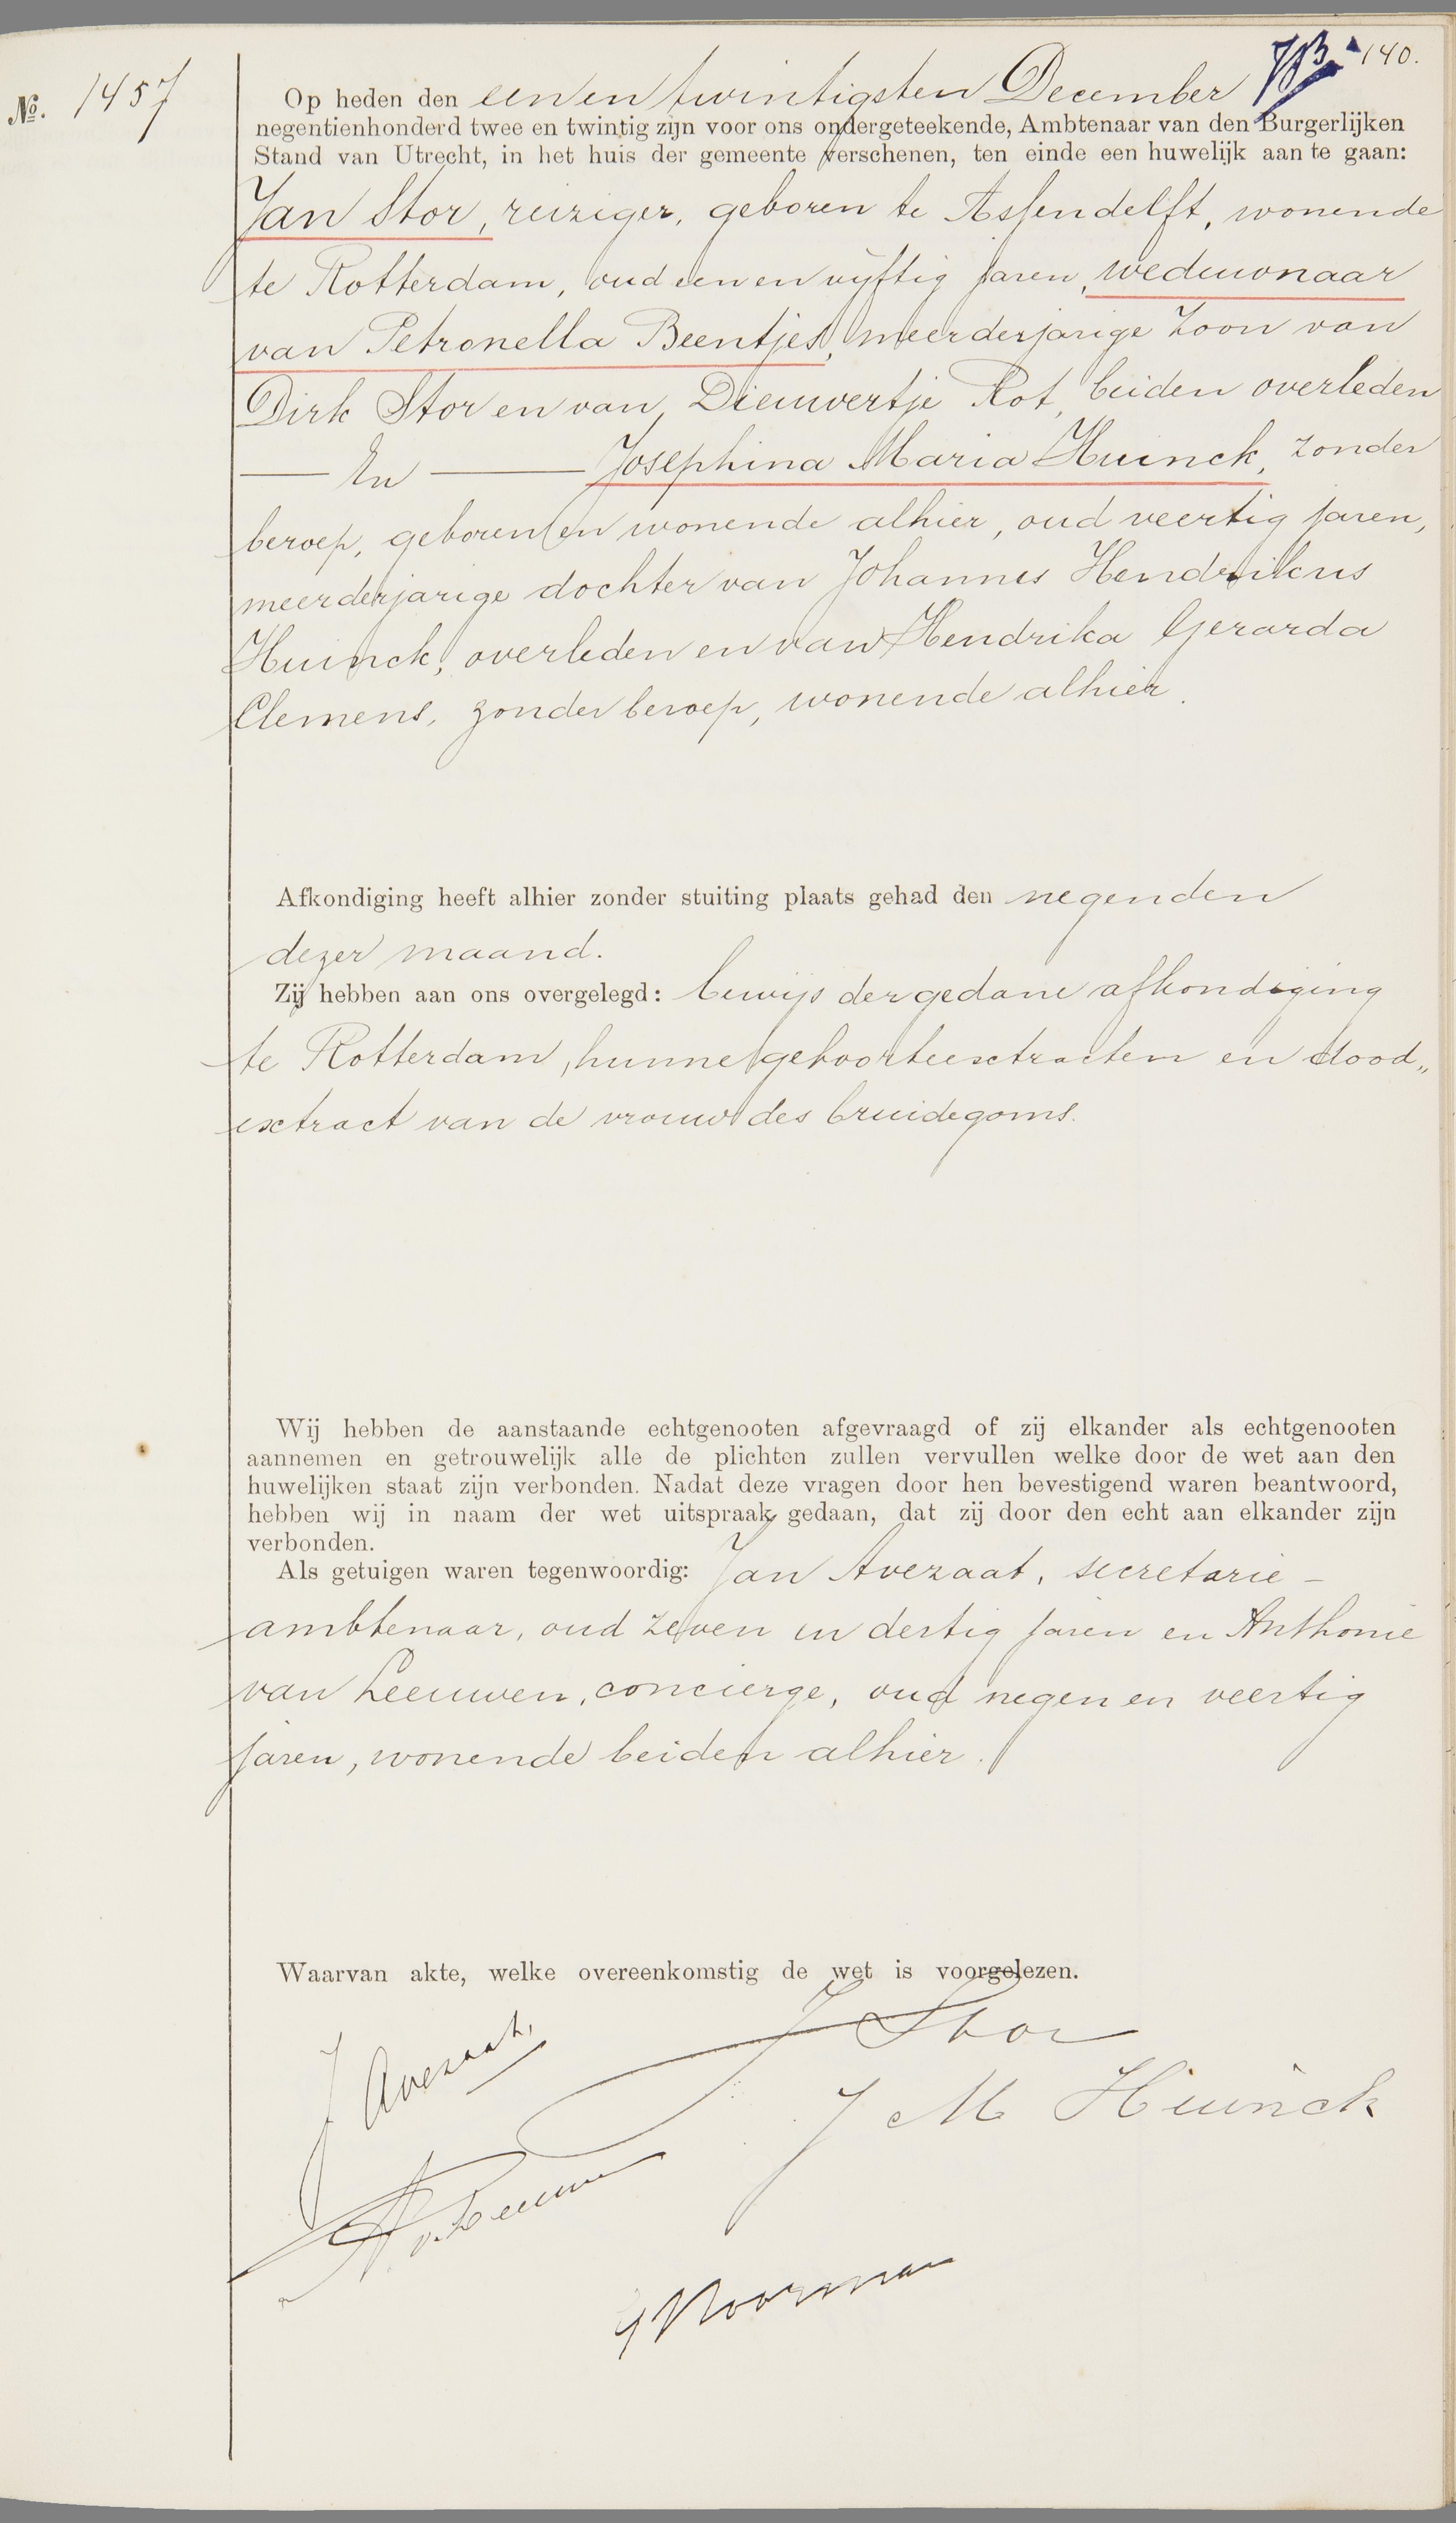 140.
No. 1457
Op heden den een en twintigsten December
negentienhonderd twee en twintig zijn voor ons ondergeteekende, Ambtenaar van den Burgerlijken
Stand van Utrecht, in het huis der gemeente verschenen, ten einde een huwelijk aan te gaan:
Jan Stor, reiziger, geboren te Assendelft, wonende
te Rotterdam, oud een en vijftig jaren, weduwnaar
van Petronella Beentjes, meerderjarige zoon van
Dirk Stor en van Dieuwertje Rot, beiden overleden
— En — Josephina Maria Huinck, zonder
beroep, geboren en wonende alhier, oud veertig jaren,
meerderjarige dochter van Johannes Hendrikus
Huinck, overleden en van Hendrika Gerarda
Clemens, zonder beroep, wonende alhier.
Afkondiging heeft alhier zonder stuiting plaats gehad den negenden
dezer maand.
Zij hebben aan ons overgelegd: bewijs der gedane afkondiging
te Rotterdam, hunne geboorteextracten en dood„
extract van de vrouw des bruidegoms.
Wij hebben de aanstaande echtgenooten afgevraagd of zij elkander als echtgenooten
aannemen en getrouwelijk alle de plichten zullen vervullen welke door de wet aan den
huwelijken staat zijn verbonden. Nadat deze vragen door hen bevestigend waren beantwoord,
hebben wij in naam der wet uitspraak gedaan, dat zij door den echt aan elkander zijn
verbonden.
Als getuigen waren tegenwoordig: Jan Avezaat, secretarie-
ambtenaar, oud zeven en dertig jaren en Anthonie
van Leeuwen, concierge, oud negen en veertig
jaren, wonende beiden alhier.
Waarvan akte, welke overeenkomstig de wet is voorgelezen.
J Stor
J Avezaat.
J M Huinck
A v. Leeuwen
G Noorman